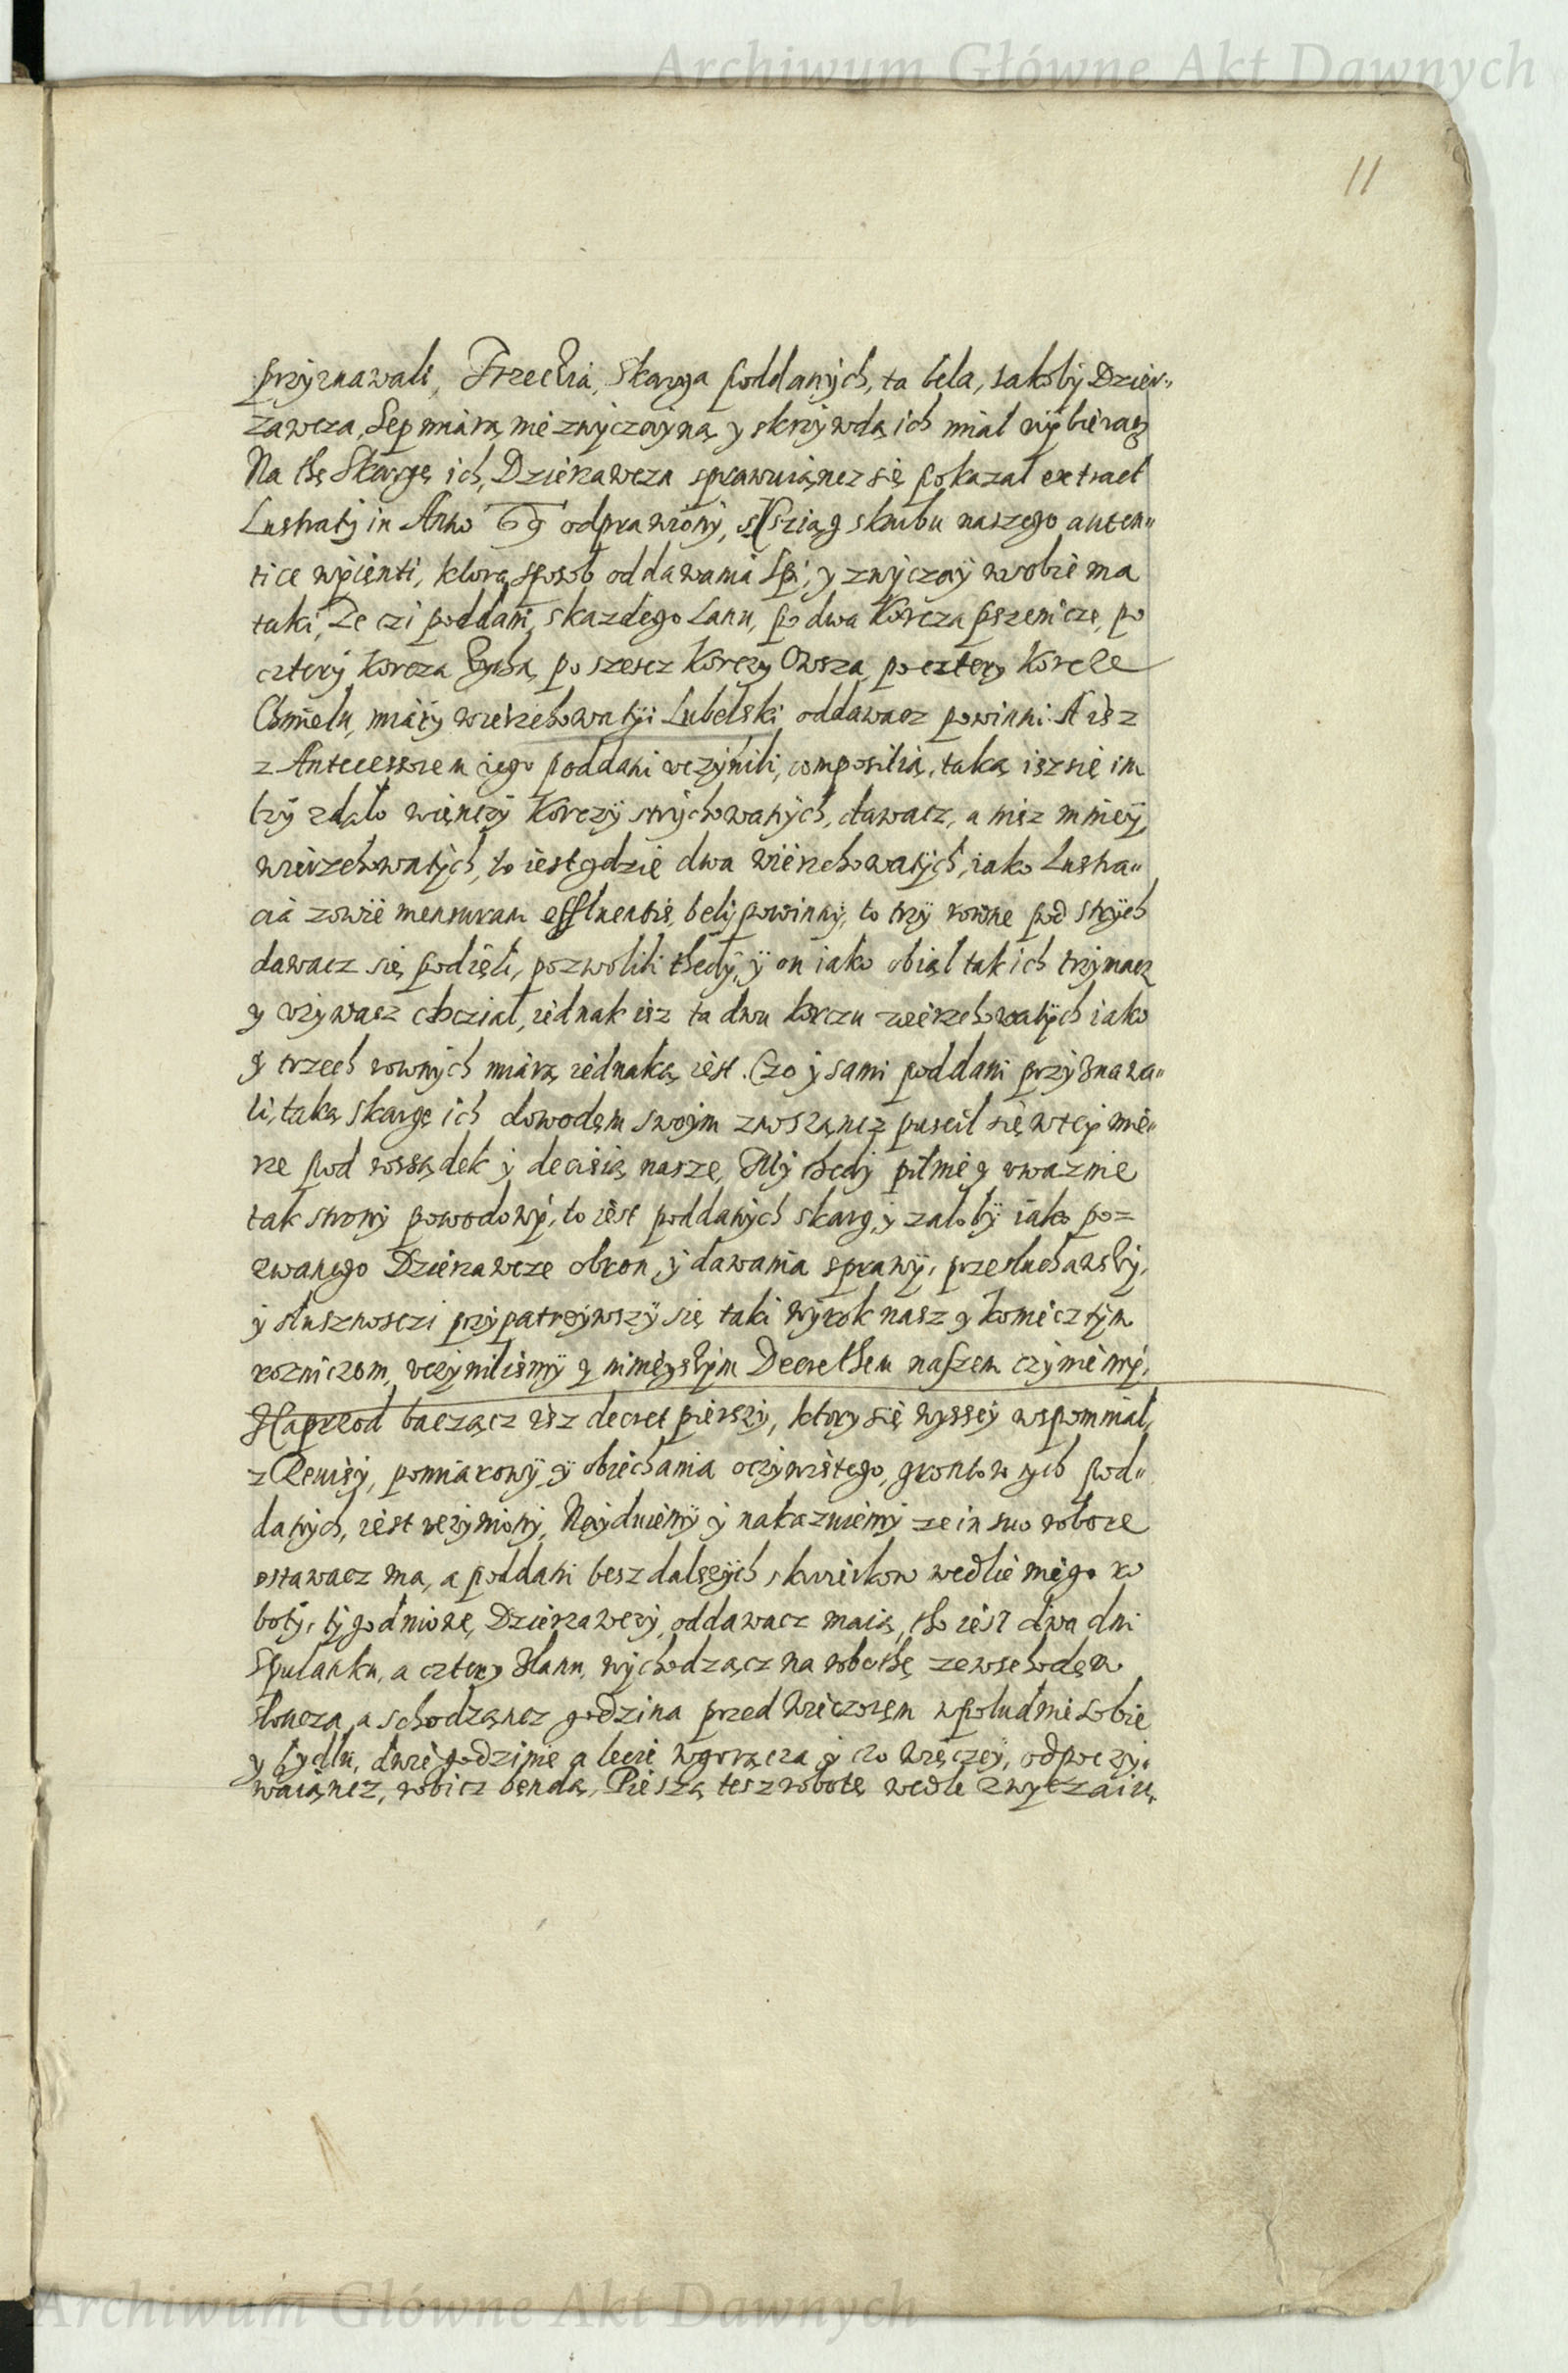 Archiwum Główne Akt Dawnych
11
przyznawali, Trzecħia, Skarga poddanych, ta bela, iakoby Dzier„
zawcza, Sep miarą niezwyczayną y skrzywdą ich miał wybieracz
Na thę Skargę ich, Dzierzawcza sprawuiąncz się pokazał extract
Lustratÿ in Anno 69 odprawiony, s Xsziąg skarbu naszego auten„
tice wÿcienti, ktorą sposob oddawania Spi, y zwÿczaÿ wsobie ma
taki, Ze czi poddani, skazdego Lanu, po dwa Korcza pszenicze, po
cztery Korcza Zytha, po szescz Korczy Owsza, po cztery Korcze
Chmielu, miary wierzchowatÿi Lubelski, oddawacz powinni. A isz
z Antecessorem iego poddani vczÿnili, compositią, taką isz się im
lzÿ zdało więnczÿ Korczÿ strychowanych, dawacz, a nisz mnieÿ
wierzchowatych, to iest gdzie dwa wierzchowatÿch, iako Lustra„
cia zowie mensuram effluentis, beli powinni, to trzÿ rowne pod strÿch
dawacz się podięli, pozwolili thedÿ, ÿ on iako obiął tak ich trzymacz
y vzÿwacz chcział, iednak isz ta dwu korczu wierzchowatÿch iako
y trzech rownych miara iednaka iest. Czo y sami poddani przyznawa„
li, taką skargę ich dowodęm swoim znosząncz puscił się wteÿ mie„
rze pod rossądek y decisią naszę, My thedy pilnie y vwaznie
tak strony powodowÿ, to iest poddanych skarg, y załobÿ iako po=
zwanego Dzierzawcze obron, ÿ dawania sprawÿ, przesłuchawszy,
y słusznosczi przypatrzÿwszÿ się taki wÿrok nasz y koniecztym
rozniczom, vczynilismÿ y ninieyszÿm Decrethem naszem czynimÿ.
Naprzod baczącz isz decret pierszÿ, ktory się wysseÿ wspomniał,
z Rewisÿ, pomiarowÿ y obiechania oczÿwistego, grontow tych pod„
danych, iest vczÿniony, Naÿduiemÿ y nakazuiemy ze in suo robore
ostawacz ma, a poddani besz dalszÿch skwirkow wedlie niego ro
botÿ, tÿgodniowe, Dzierzawczÿ, oddawacz maią, tho iest dwa dni
Spulanku, a cztery Złanu, wychodzącz na robothę zewschodęm
słoncza, a schodząncz godzina przed Wieczorem wpołudnie sobie
y bydłu, dwie godzinie a lecie wgorącza y czo więczeÿ, odpoczÿ„
waiąncz, robicz bęndą, Pieszą tesz robotę wedle zwyczaiu,
Archiwum Główne Akt Dawnych